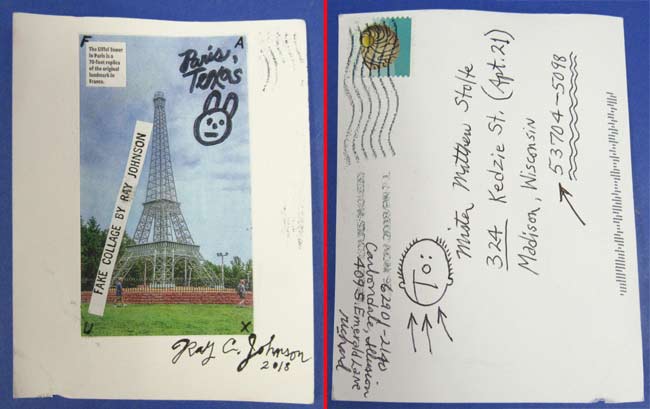 F
A
The Eiffel Tower
in Paris is a
70-foot replica
of the original
landmark in
France.
Paris,
Texas
FAKE COLLAGE BY RAY JOHNSON
U
X
Ray C. Johnson
2018
Mister Matthew Stolte
324 Kedzie St. (Apt. 21)
Madison, Wisconsin
53704-5098
To:
Richard
409 S. Emerald Lane
Carbondale, Illusion
62901-2140